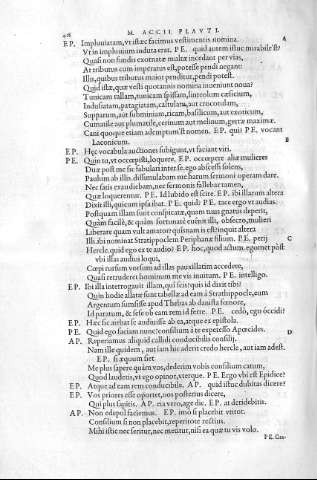 M. ACCII PLAVTI.
EP. Impluuiatam, vt istæc facimus vestimentis nomina. A
Vt in impluuium induta erat. PE. quid autem istuc mirabile'st?
Quasi non fundis exornatæ multæ incedant per vias,
At tributus cum imperatus est, potesse pendi negant:
Illis, quibus tributus maior penditur, pendi potest.
Quid istæ, quæ vesti quotannis nomina inueniunt noua?
Tunicam rallam, tunicam spissam, linteolum cæsicium,
Indusiatam, patagiatam, caltulam, aut crocotulam,
Supparum, aut subminiam, ricam, basilicum, aut exoticum,
Cumatile aut plumatile, cerinum aut melinum, gerræ maximæ.
Cani quoque etiam ademptum'st nomen. EP. quî? PE. vocant
Laconicum. B
EP. Hęc vocabula auctiones subigunt, vt faciant viri.
PE. Quin tu, vt occœpisti, loquere. EP. occœpere aliæ mulieres
Duæ post me sic fabulari inter se. ego abscessi solens,
Paulum ab illis. dissimulabam me harum sermoni operam dare.
Nec satis exaudiebam, nec sermonis fallebar tamen,
Quæ loquerentur. PE. Id lubido est scire. EP. ibi illarum altera
Dixit illi, quicum ipsa ibat. PE. quid? EP. tace ergo vt audias.
Postquam illam sunt conspicatæ, quam tuus gnatus deperit,
Quàm facilè, & quàm fortunatè euenit illi, obsecro, mulieri
Liberare quam vult amator quisnam is est? inquit altera
Illi. ibi nominat Stratippoclem Periphanæ filium. PE. perij C
Hercle. quid ego ex te audio? EP. hoc, quod actum. egomet post
vbi illas audiui loqui,
Cœpi rursum vorsum ad illas pauxillatim accedere,
Quasi retruderet hominum me vis inuitum. PE. intelligo.
EP. Ibi illa interrogauit illam, quî scis? quis id dixit tibi?
Quin hodie allatæ sunt tabellæ ad eam à Stratippocle, eum
Argentum sumsisse apud Thebas ab danista fœnore,
Id paratum, & sese ob eam rem id ferre. PE. cedò, ego occidi?
EP. Hæc sic aiebat se audiuisse ab ea, atque ex epistola.
PE. Quid ego faciam nunc? consilium à te expetesso Apœcides. D
AP. Reperiamus aliquid callidi conducibilis consilij.
Nam ille quidem, aut iam hic aderit credo hercle, aut iam adest.
EP. si æquum siet
Me plus sapere quàm vos, dederim vobis consilium catum,
Quod laudetis, vt ego opinor, vterque. PE. Ergo vbi est Epidice?
EP. Atque ad eam rem conducibile. AP. quid istuc dubitas dicere?
EP. Vos priores esse oportet, nos posterius dicere,
Qui plus sapitis. AP. eia vero, age dic. EP. at deridebitis.
AP. Non edepol faciemus. EP. imò si placebit vtitor.
Consilium si non placebit, reperitote rectius.
Mihi istic nec seritur, nec metitur, nisi ea quæ tu vis volo.
PE. Con-